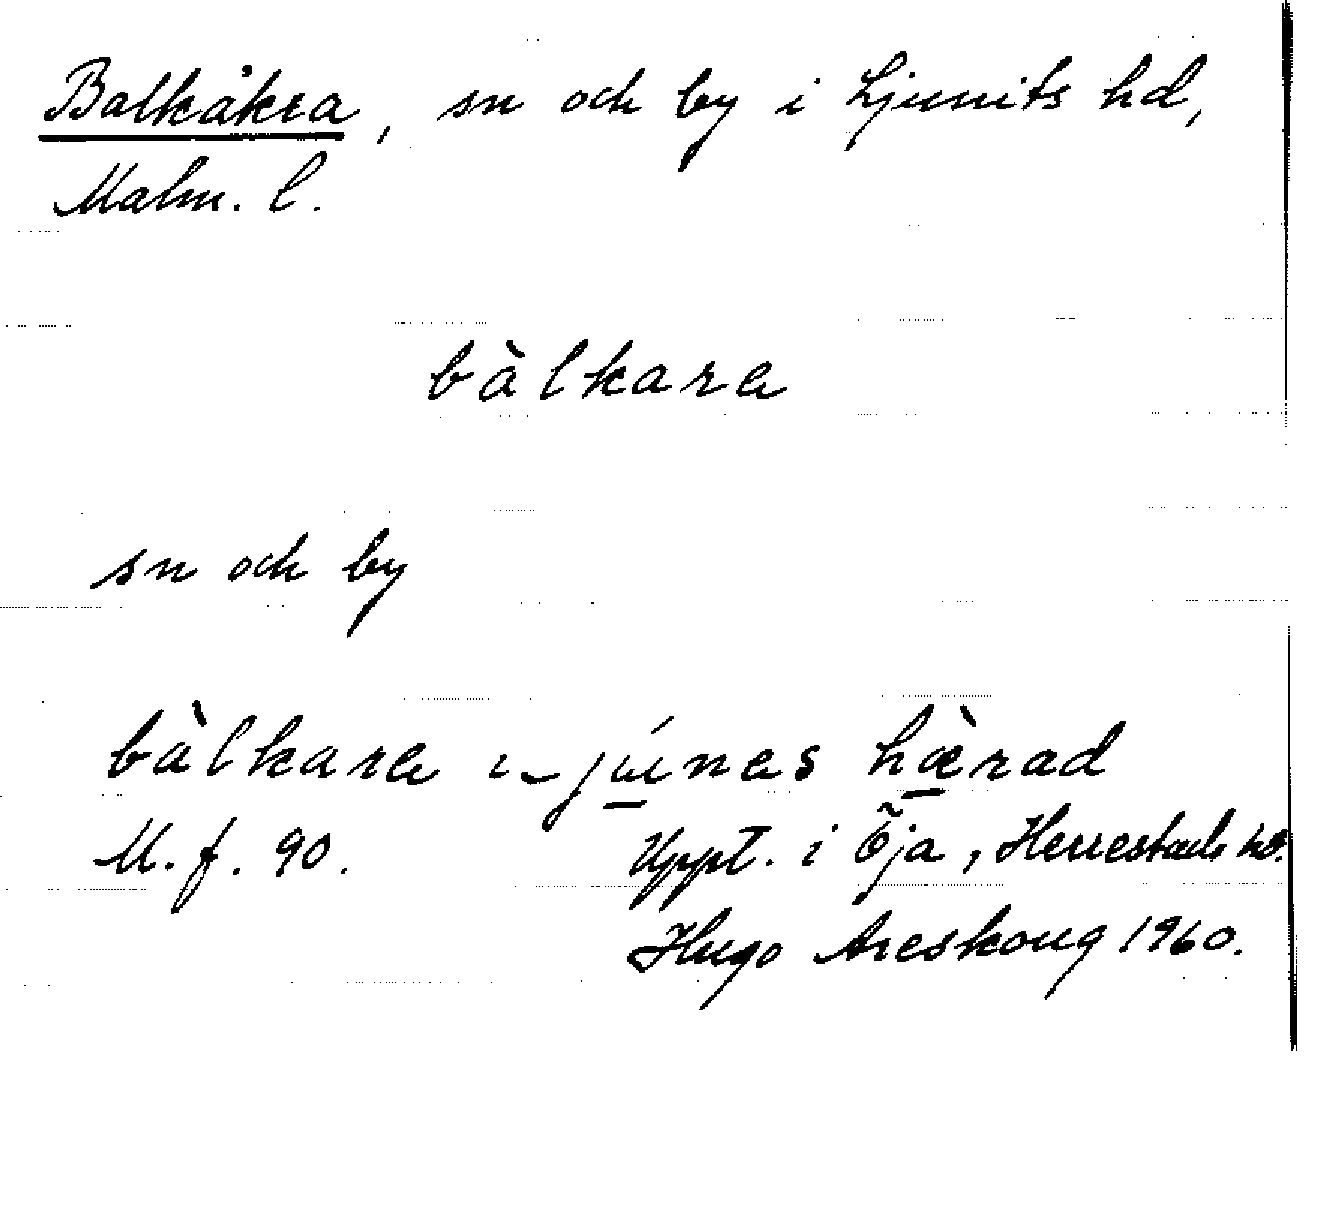 Balkåkra, sn och by i Ljunits hd,
Malm. l.
bàlkara
sn och by
bàlkara i júnas hæ̀rad
M. f. 90. Uppt. i Öja, Herrestads hd.
Hugo Areskoug 1960.